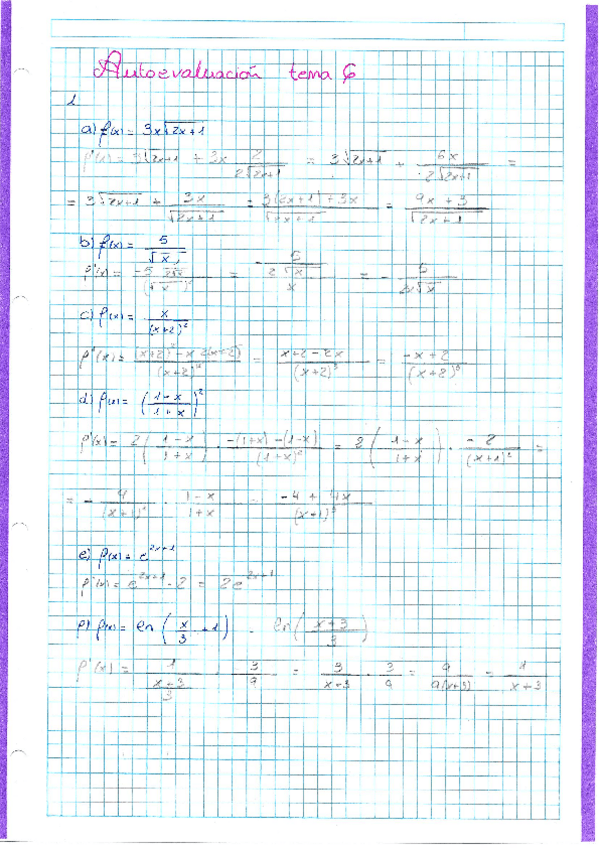 Autoevaluación tema 6
1
a) f(x) = 3x√(2x+1)
f'(x) = 3√(2x+1) + 3x 2/(2√(2x+1)) = 3√(2x+1) + 6x/(2√(2x+1)) =
= 3√(2x+1) + 3x/√(2x+1) = (3(2x+1)+3x)/√(2x+1) = (9x+3)/√(2x+1)
b) f(x) = 5/√x
f'(x) =
c) f(x) = x/(x+2)²
f'(x) = ((x+2)² - x 2(x+2))/(x+2)⁴ = (x+2-2x)/(x+2)³ = (-x+2)/(x+2)³
d) f(x) = ((1-x)/(1+x))²
f'(x) = 2((1-x)/(1+x)) · (-(1+x)-(1-x))/(1+x)² = 2((1-x)/(1+x)) · -2/(x+1)² =
= - 4/(x+1)² · (1-x)/(1+x) = (-4+4x)/(x+1)³
e) f(x) = e^(2x+1)
f'(x) = e^(2x+1) · 2 = 2e^(2x+1)
f) f(x) = ln(x/3 + 1) = ln((x+3)/3)
f'(x) = 1/((x+3)/3) · 3/9 = 3/(x+3) · 3/9 = 9/(9(x+3)) = 1/(x+3)